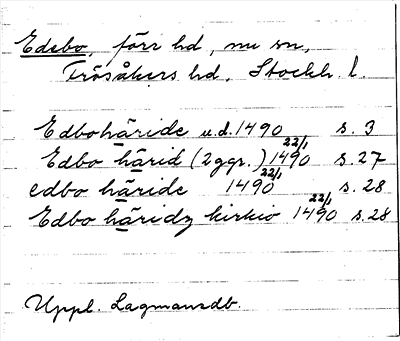 Edebo, förr hd, nu sn,
Frösåkers hd, Stockh. l.
Edbohäride u.d. 1490 s. 3
Edbo härid (2 ggr.) 1490 22/1 s. 27
edbo häride 1490 22/1 s. 28
Edbo häridz kirkio 1490 22/1 s. 28
Uppl. Lagmansdb.